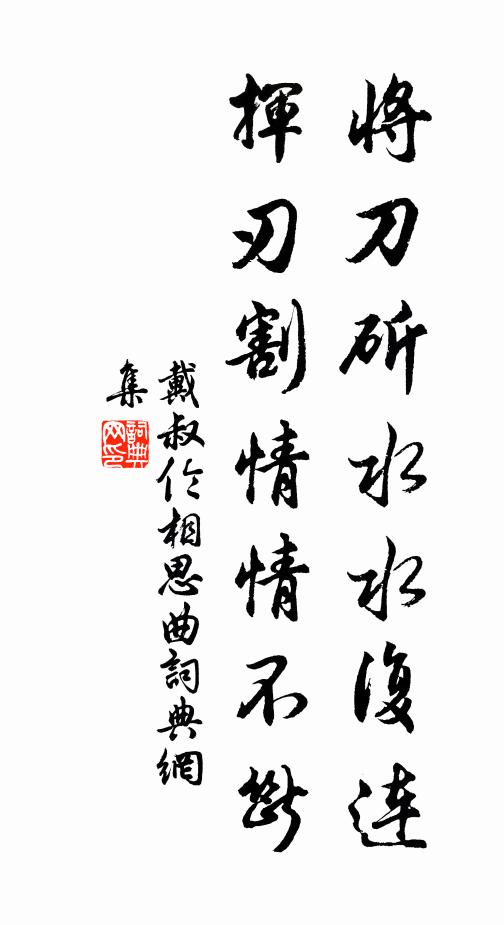 將刀斫水水復連
揮刃割情情不斷
戴叔伦相思曲詞典網
集
詞典
网印